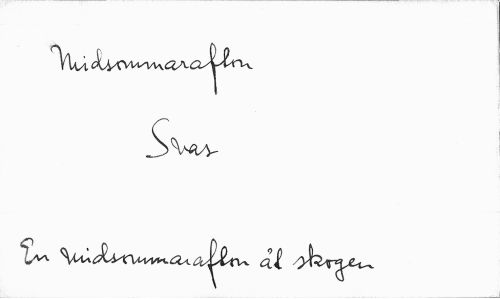 Midsommarafton
Svas
En midsommarafton åt skogen